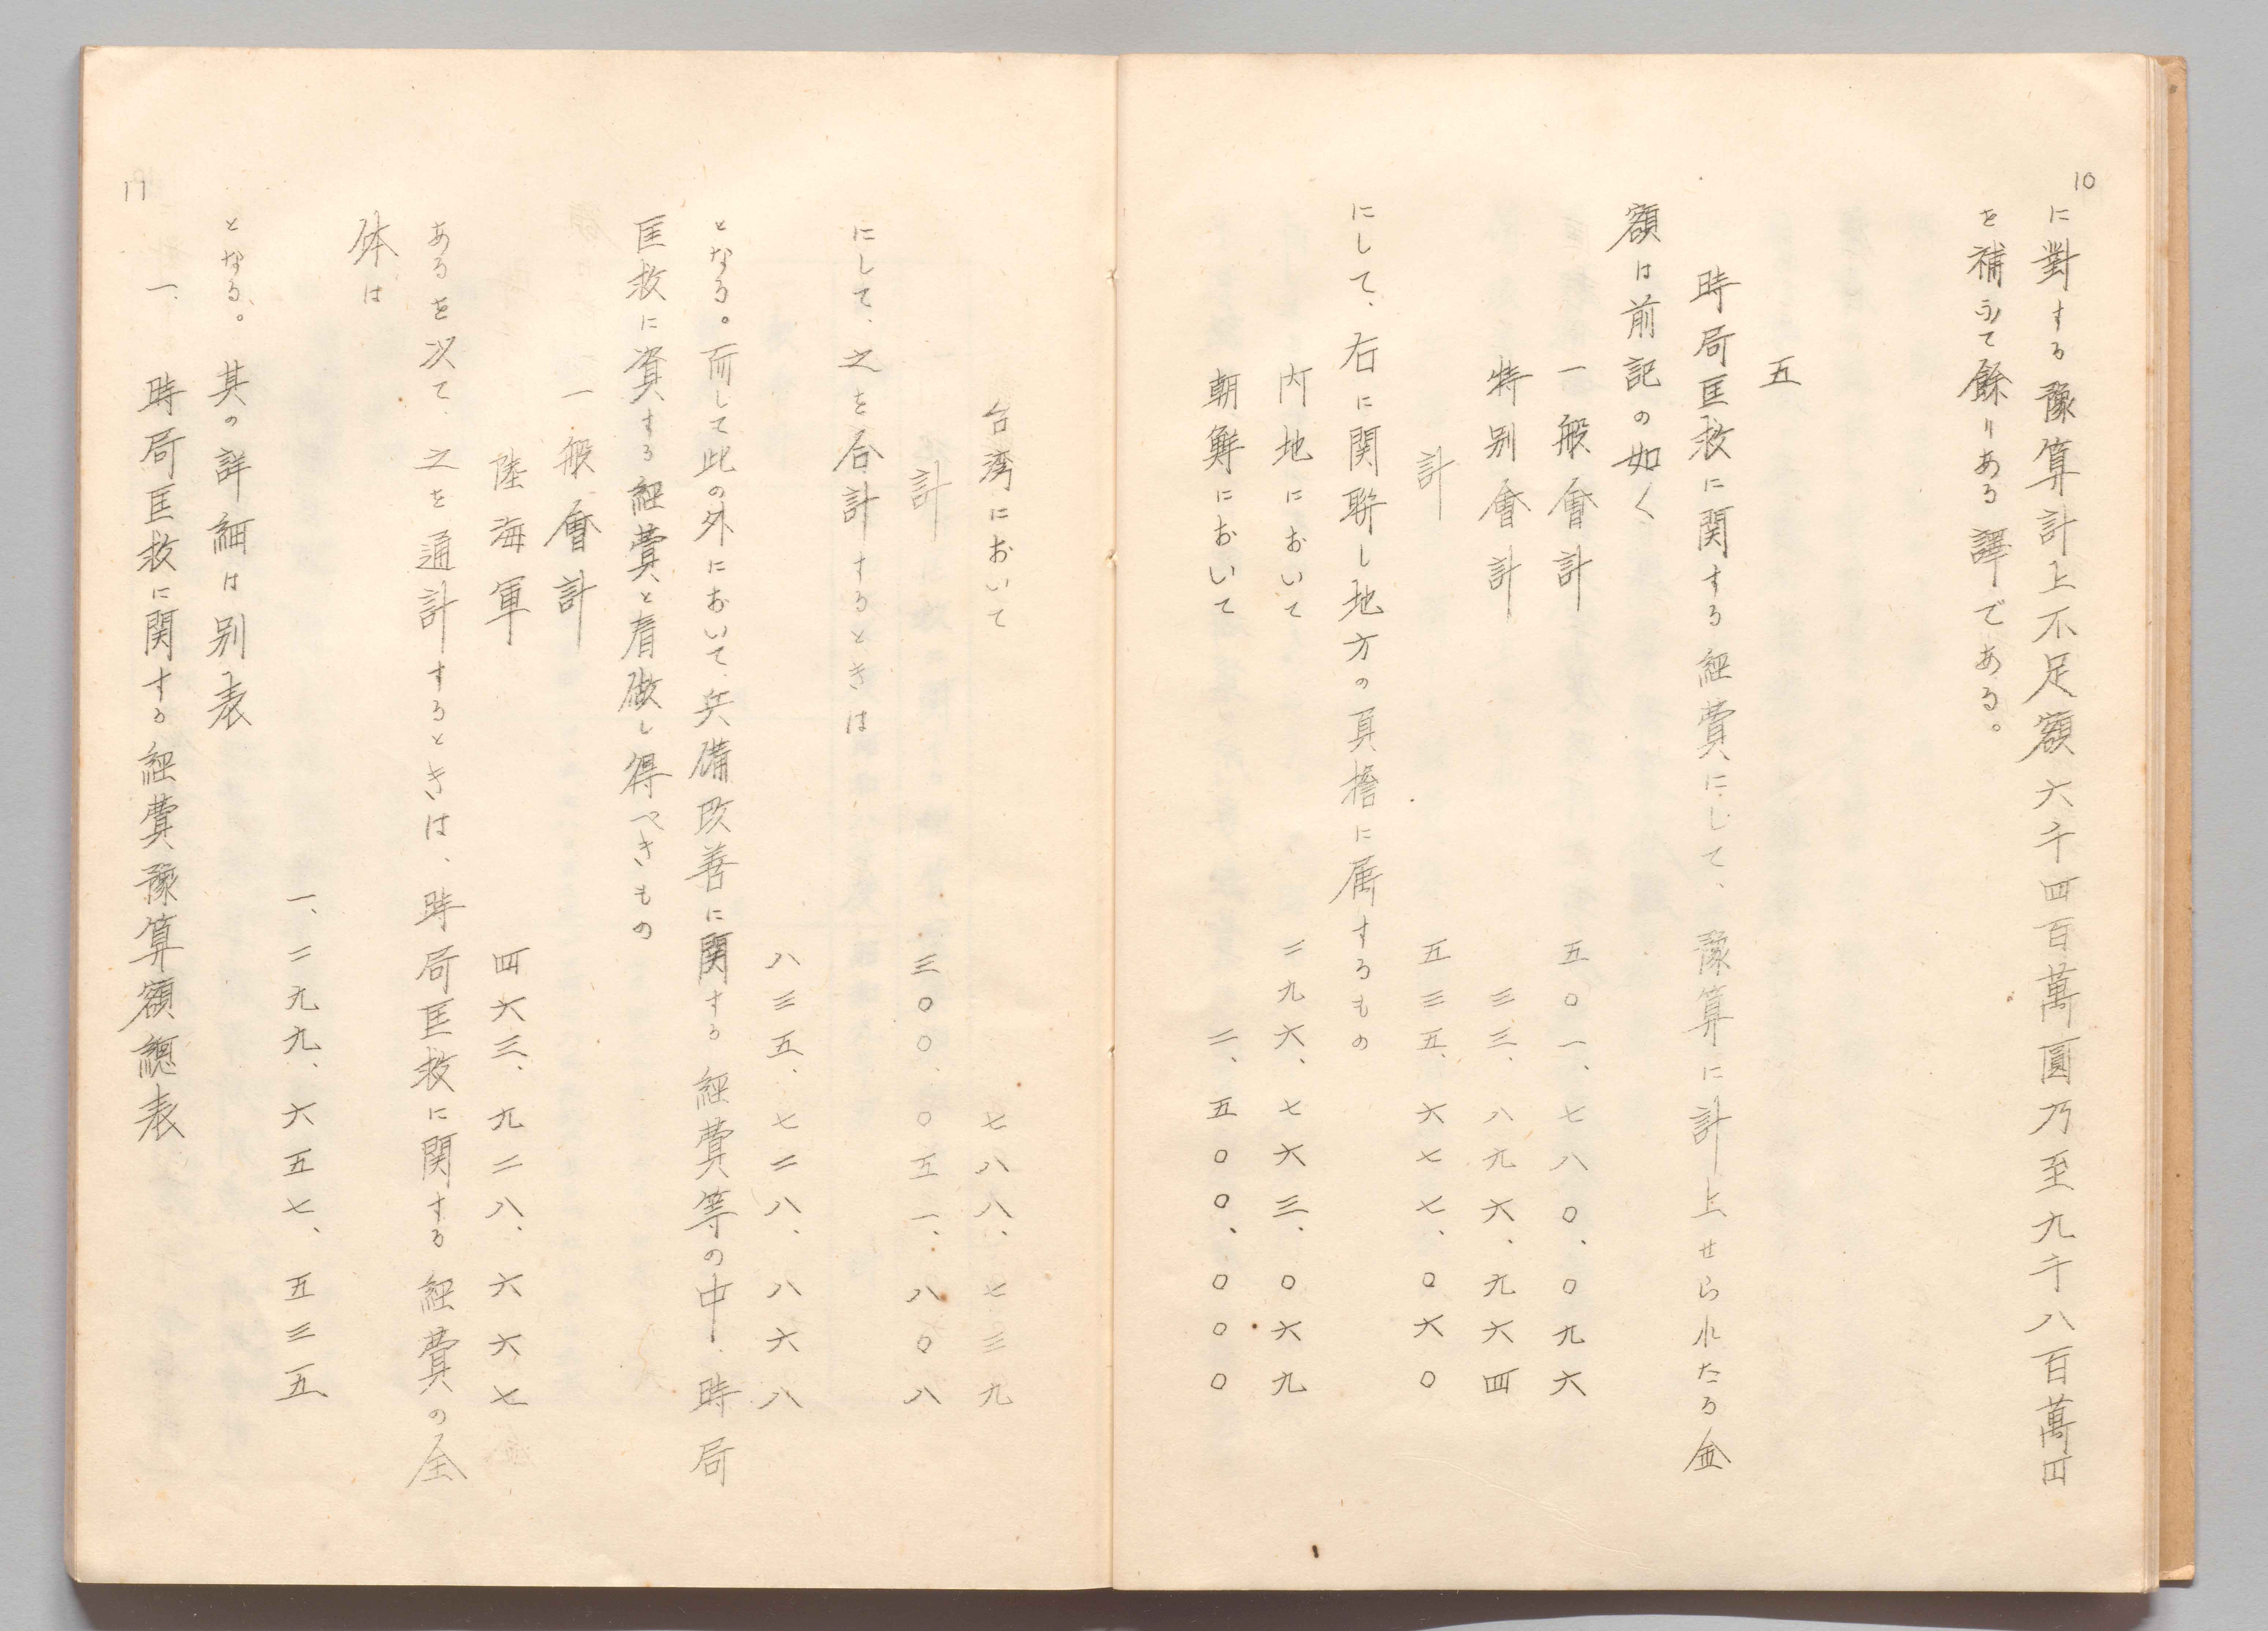 10
に對する豫算計上不足額六千四百萬圓乃至九千八百萬円
を補うて餘りある譯である。
五
時局匡救に関する経費にして、豫算に計上せられたる金
額は前記の如く
一般會計 五〇一、七八〇、〇九六
特別會計 三三、八九六、九六四
計 五三五、六七七、〇六〇
にして、右に関聨し地方の負擔に属するもの
内地において 二九六、七六三、〇六九
朝鮮において 二、五〇〇、〇〇〇
台湾において 七八八、七三九
計 三〇〇、〇五一、八〇八
にして、之を合計するときは
八三五、七二八、八六八
となる。而して此の外において、兵備改善に関する経費等の中、時局
匡救に資する経費と看做し得べきもの
一般會計
陸海軍 四六三、九二八、六六七
あるを以て、之を通計するときは、時局匡救に関する経費の全
体は
一、二九九、六五七、五三五
となる。其の詳細は別表
一、時局匡救に関する経費豫算額總表
11